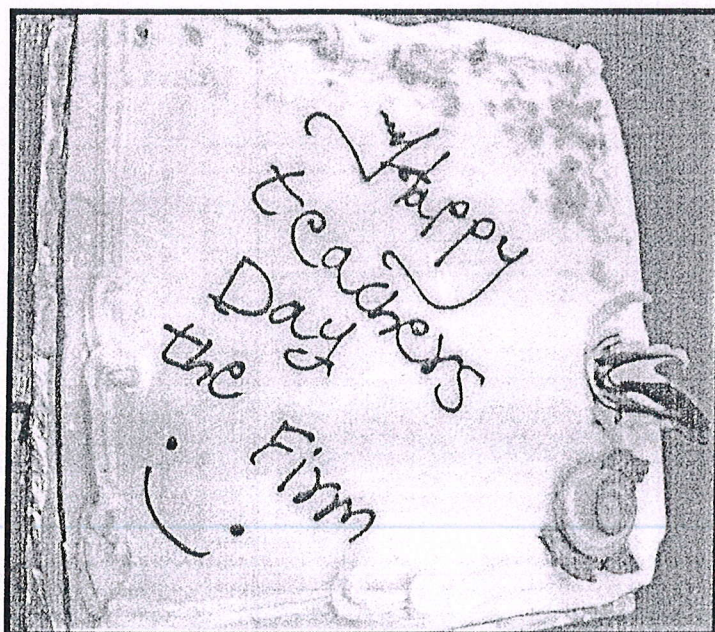 Happy
teachers
Day
the Firm